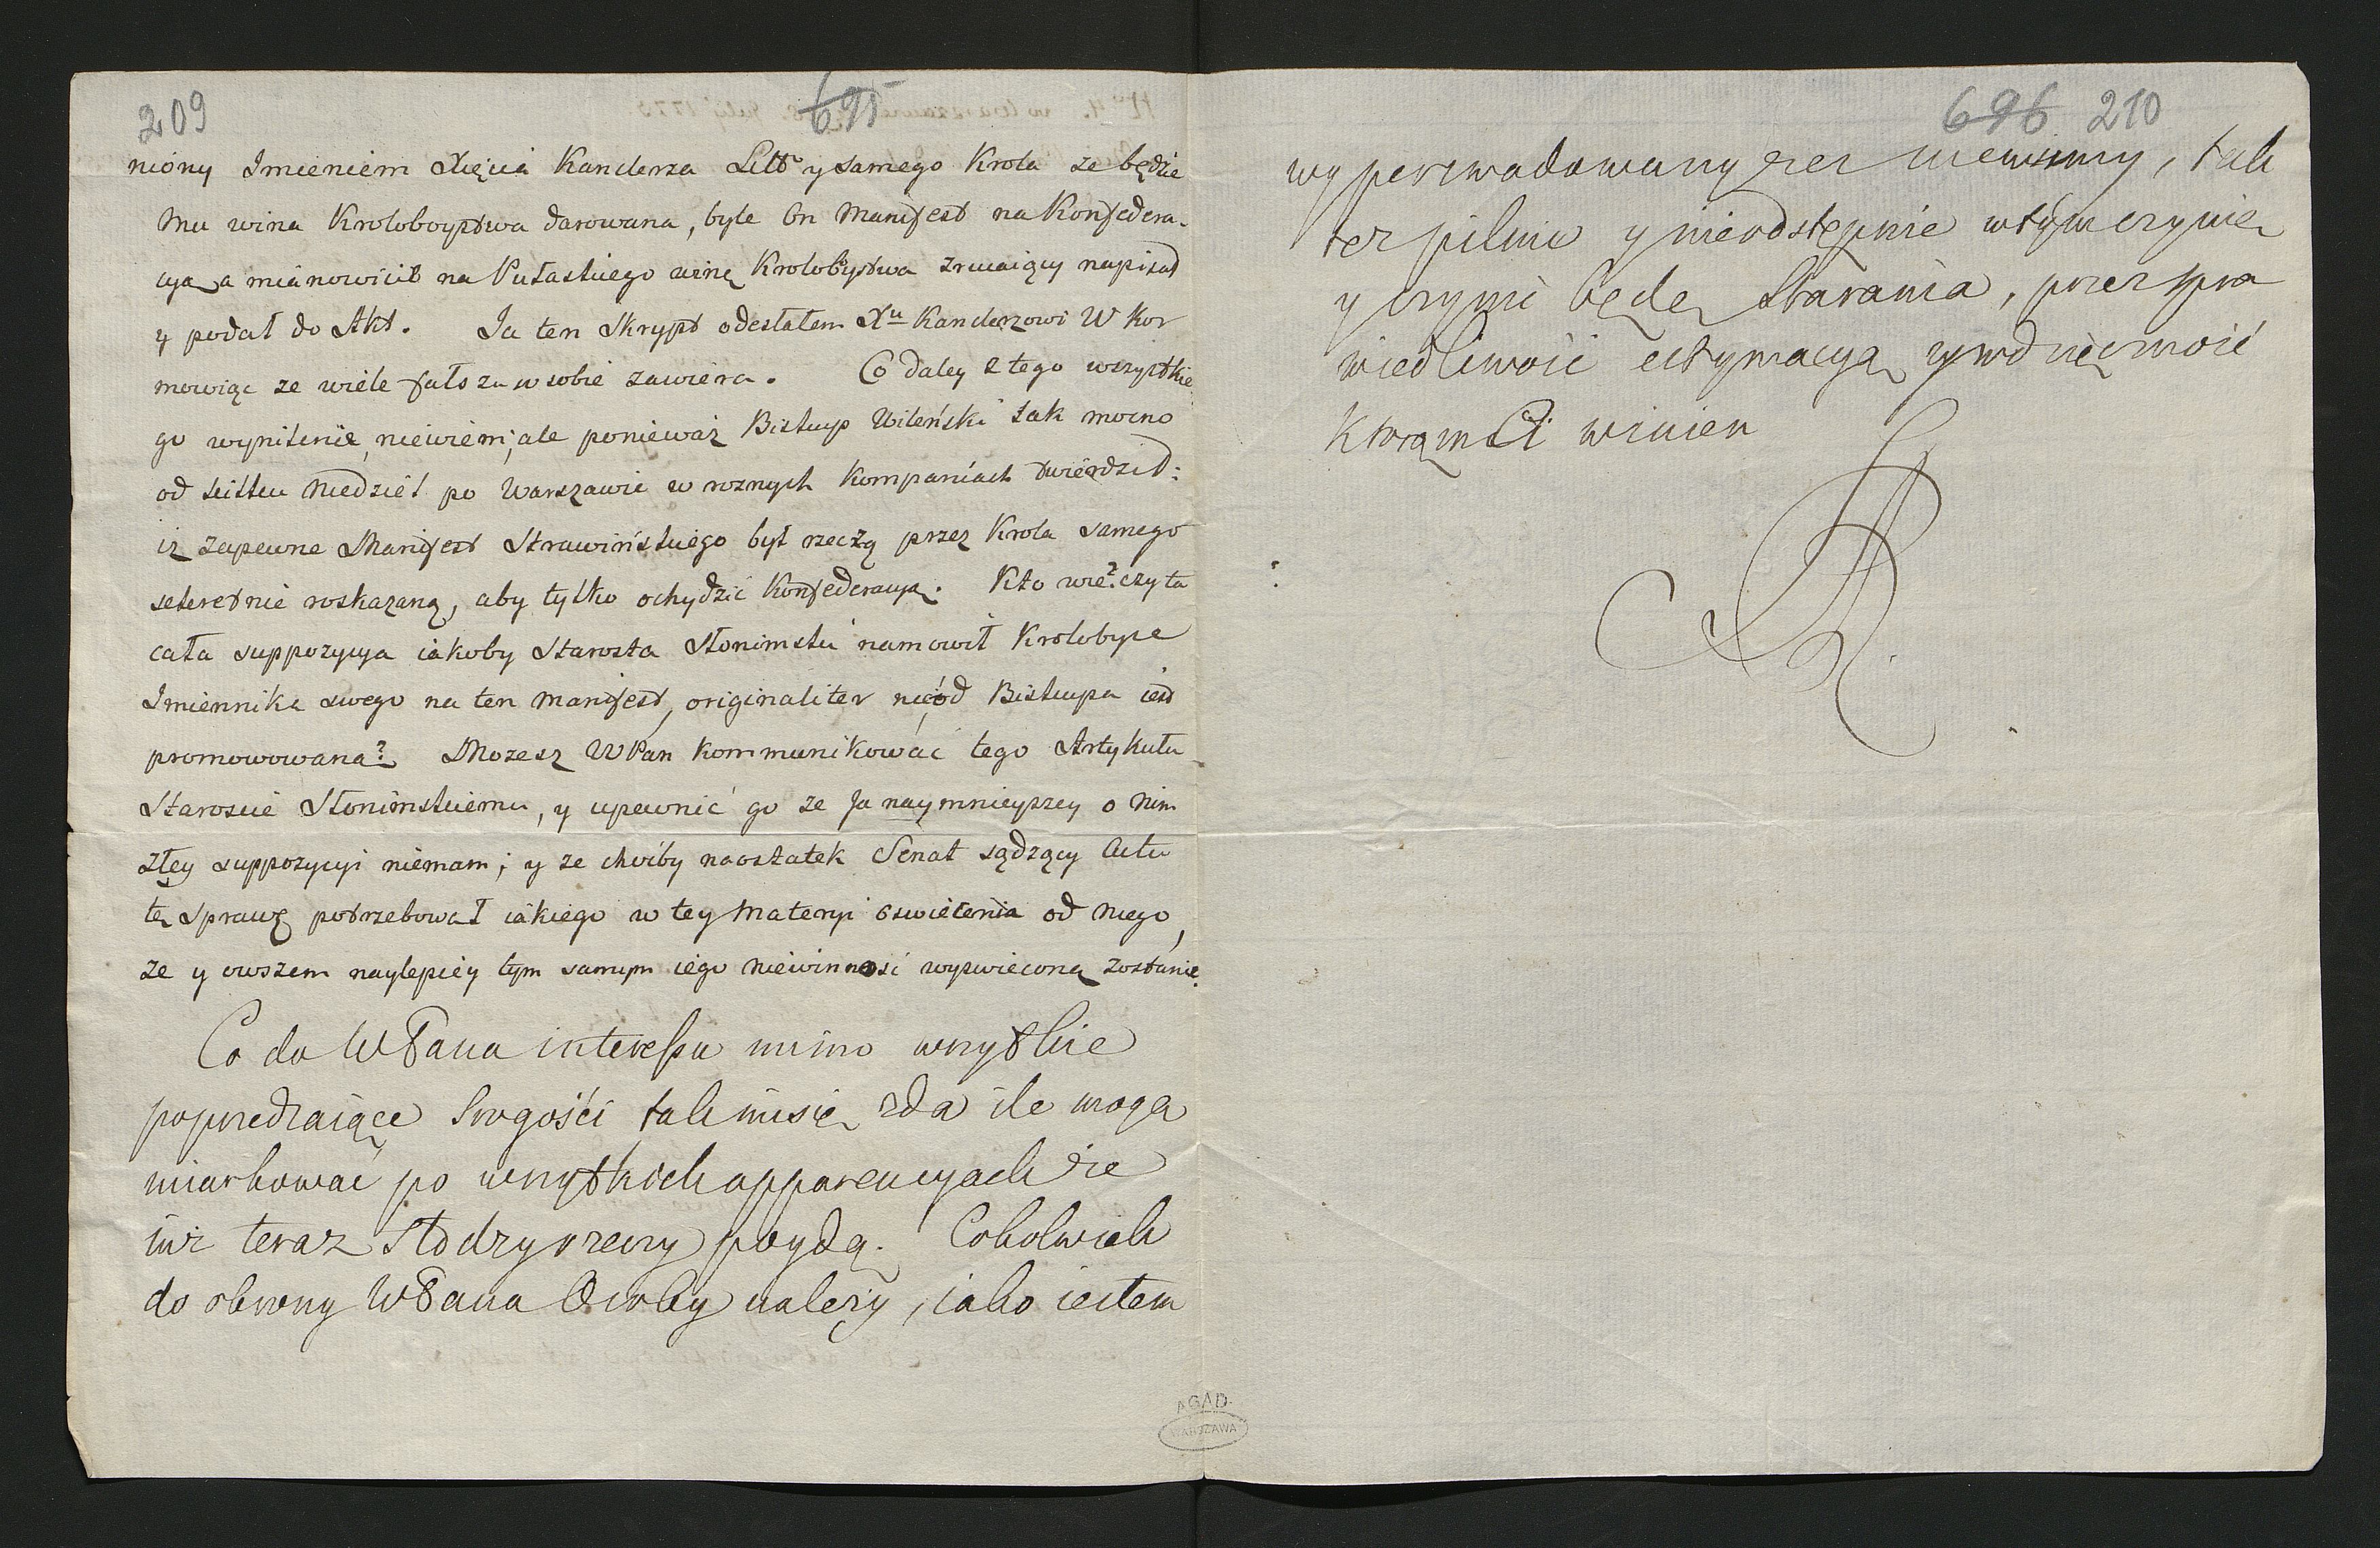 209
695
niony Imieniem Xięcia Kanclerza Littº y samego Krola ze będzie
Mu wina Kroloboystwa darowana, byle On Manifest na Konfedera-
cyą a mianowicie na Pułaskiego winę Krolobóystwa zrucaiący napisał
y podał do Akt. Ja ten Skrypt odesłałem Xu Kanclerzowi W Kor
mowiąc ze wiele fałszu w sobie zawiera. Co daley z tego wszystkie
go wyniknie, niewiem; ale poniewaz Biskup Wileński tak mocno
od kilku Niedziel po Warszawie w roznych Kompaniach twierdził:
iz zapewne Manifest Strawińskiego był rzeczą przez Krola samego
sekretnie roskazaną, aby tylko ochydzić Konfederacyą. Kto wie? czy ta
cała suppozycya iakoby Starosta Słonimski namowił Krolobyce
Imiennika swego na ten Manifest, originaliter nie od Biskupa iest
promowowana? Mozesz WPan kommunikować tego Artykułu
Staroscie Słonimskiemu, y upewnić go ze Ja naymnieyszey o nim
złey suppozycyi niemam; y ze choćby naostatek Senat sądzący Actu
tę Sprawę potrzebował iakiego w tey Materyi oswiecenia od niego,
ze y owszem naylepiey tym samym iego niewinność wyswiecona zostanie.
Co do WPana interessu mimo wszystkie
poprzedzaiące Srogości tak misię zda ile mogą
miarkować po wszystkich apparencyach że
iuż teraz Słodzey rzeczy poydą. Cokolwiek
do obrony WPana Osoby należy, iako iestem
AGAD
WARSZAWA
696 210
wyperswadowany żeś niewinny, tak
też pilnie y nieodstępnie wtym czynię
y czynić będę Starania, przez spra
wiedliwość estymacyą y wdzięczność
ktorąmci winien
SAR.